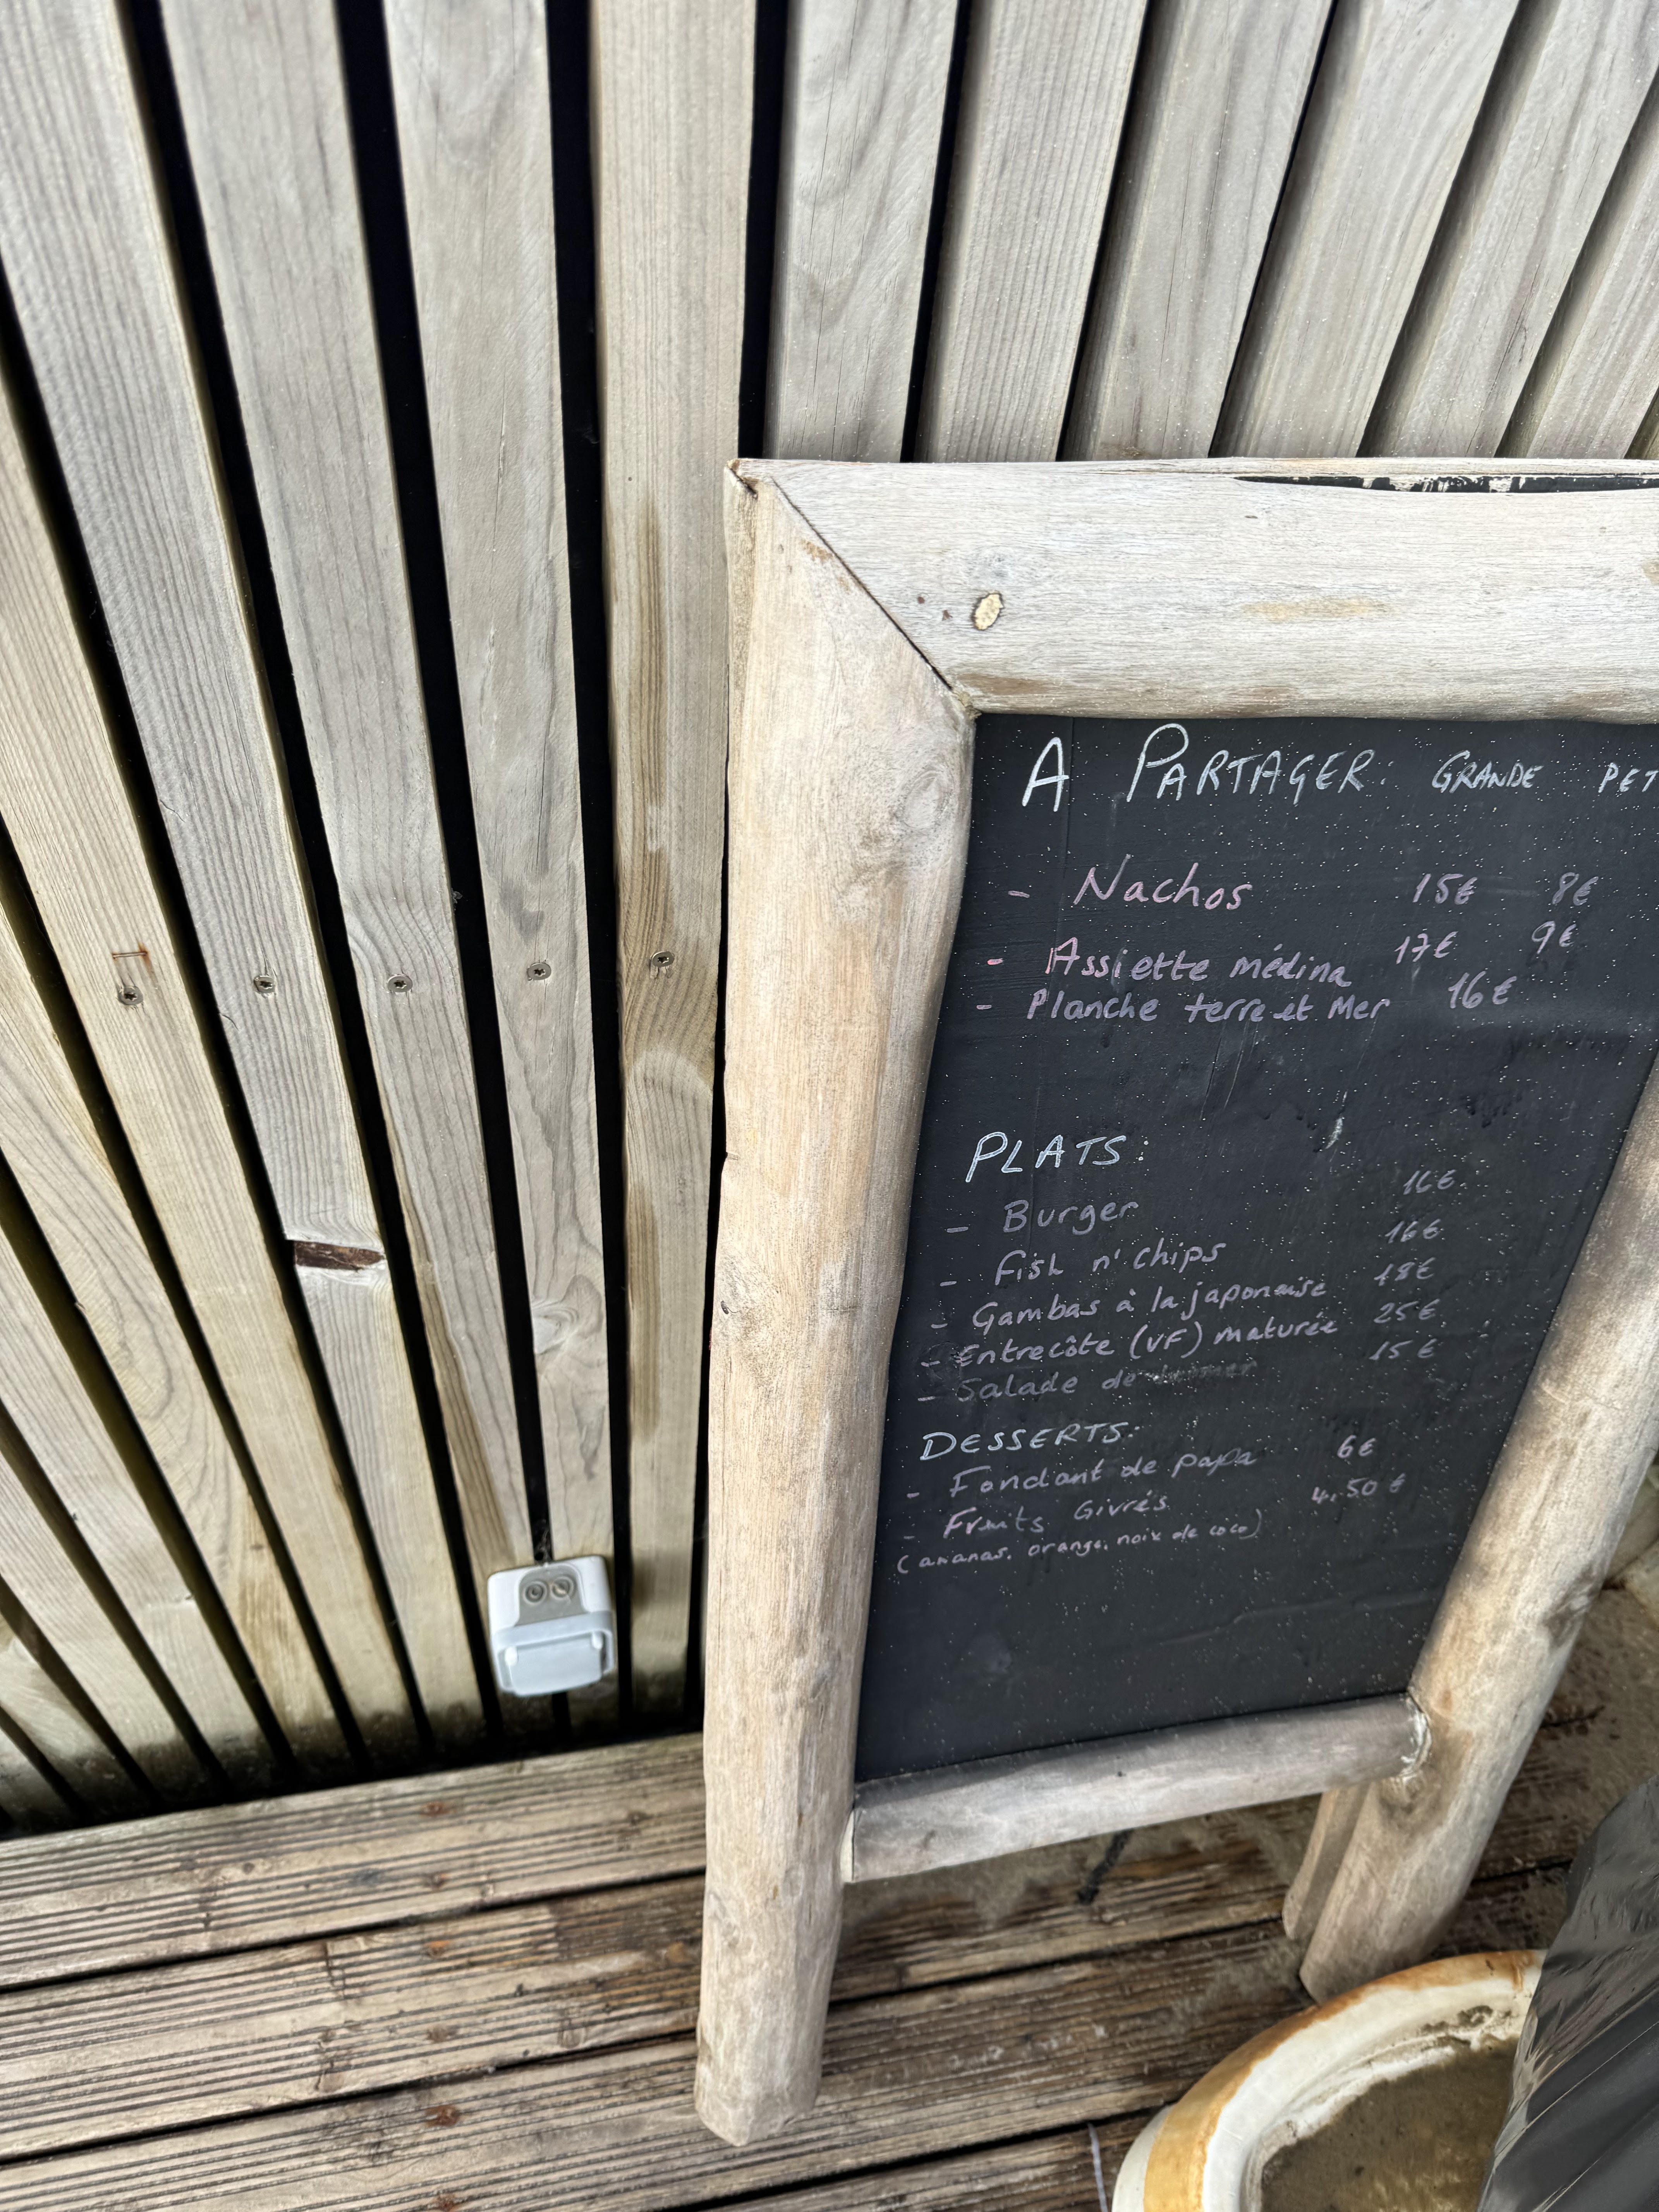 A PARTAGER: GRANDE PET
- Nachos 15€ 8€
- Assiette médina 17€ 9€
- Planche terre et Mer 16€
PLATS:
- Burger 16€
- Fish n' chips 16€
- Gambas à la japonaise 18€
- Entrecôte (VF) maturée 25€
- Salade de 15€
DESSERTS:
- Fondant de papa 6€
- Fruits Givrés 4,50€
(ananas, orange, noix de coco)